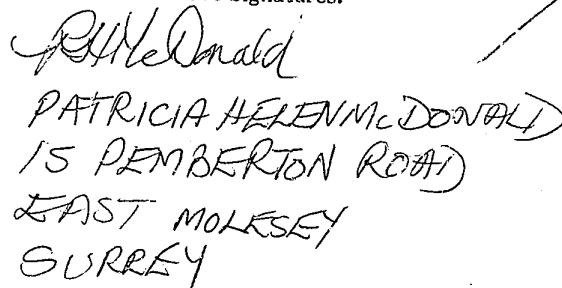 signatures.
PHMcDonald
PATRICIA HELEN McDONALD
15 PEMBERTON ROAD
EAST MOLESEY
SURREY